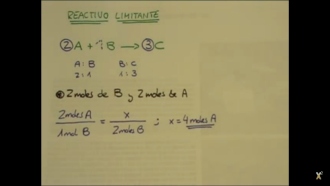 REACTIVO LIMITANTE
②A + 1B ⟶ ③C
A : B B : C
2 : 1 1 : 3
2 moles de B y 2 moles de A
2 moles A / 1 mol B = x / 2 moles B ; x = 4 moles A